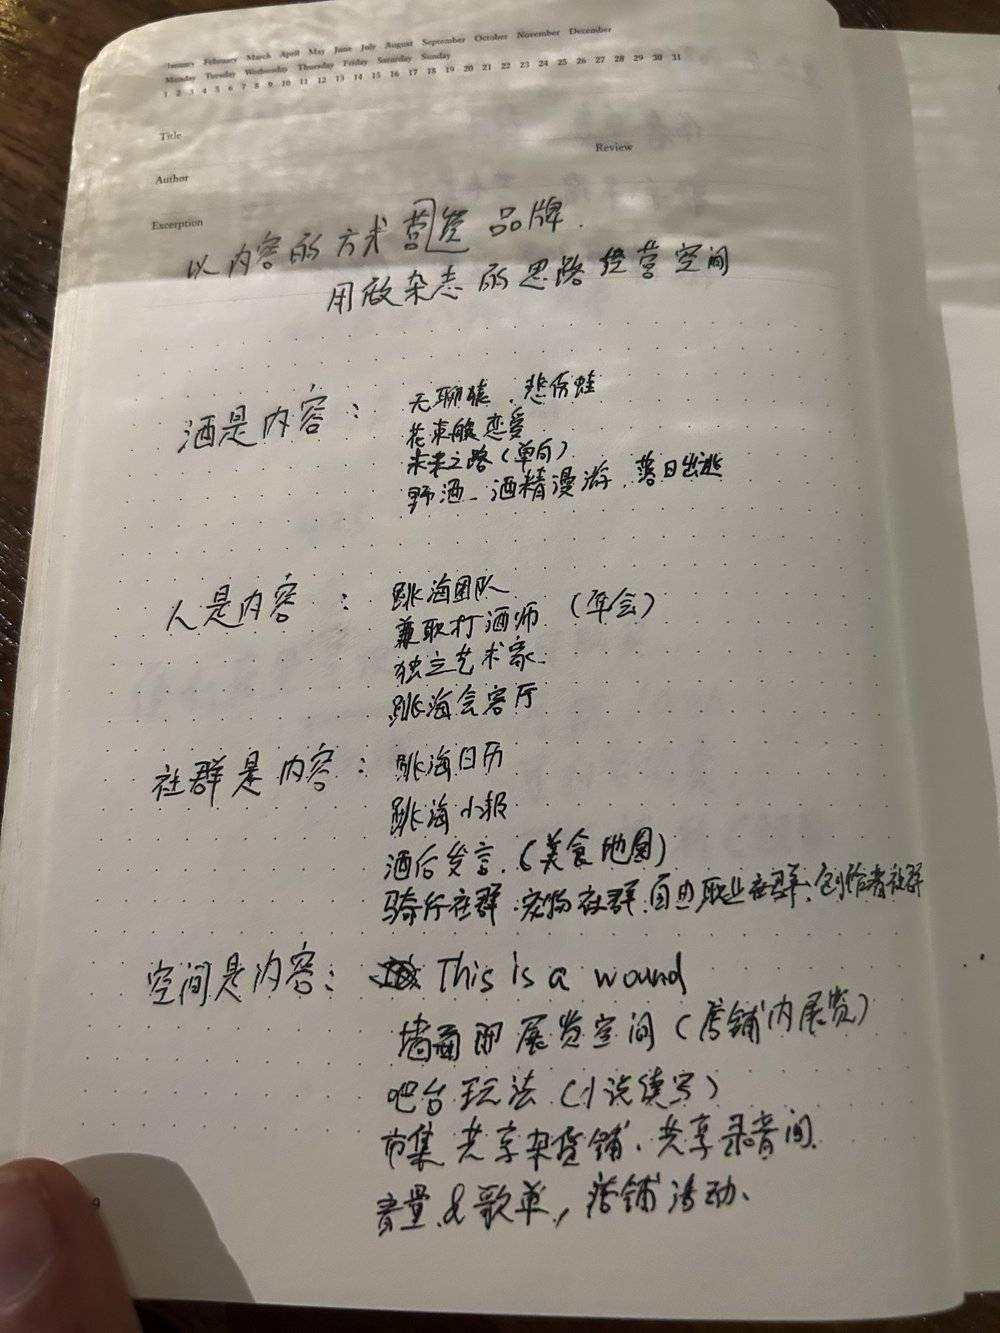 January February March April May June July August September October November December
Monday Tuesday Wednesday Thursday Friday Saturday Sunday
1 2 3 4 5 6 7 8 9 10 11 12 13 14 15 16 17 18 19 20 21 22 23 24 25 26 27 28 29 30 31
Title
Review
Author
Excerption
以内容的方式营造品牌.
用做杂志的思路经营空间
酒是内容：
无聊猿、悲伤蛙
花束般恋爱
未来之路（单向）
野酒、酒精漫游、落日出逃
人是内容：
跳海团队
兼职打酒师（年会）
独立艺术家
跳海会客厅
社群是内容：
跳海日历
跳海小报
酒后发言.（美食地图）
骑行社群、宠物社群、自由职业社群、创作者社群
空间是内容：
This is a wound
墙面即展览空间（店铺内展览）
吧台玩法（小说续写）
市集 共享杂货铺、共享录音间
音量&歌单，店铺活动、
9